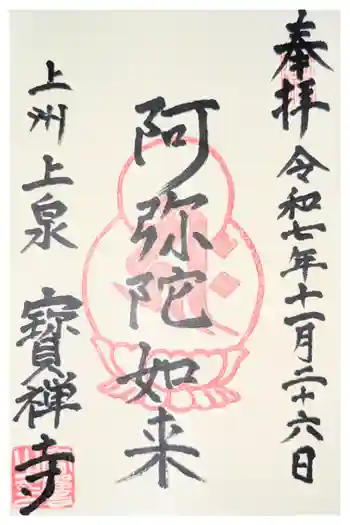 奉拝 令和七年十一月二十六日
阿弥陀如来
上州上泉 寶禅寺